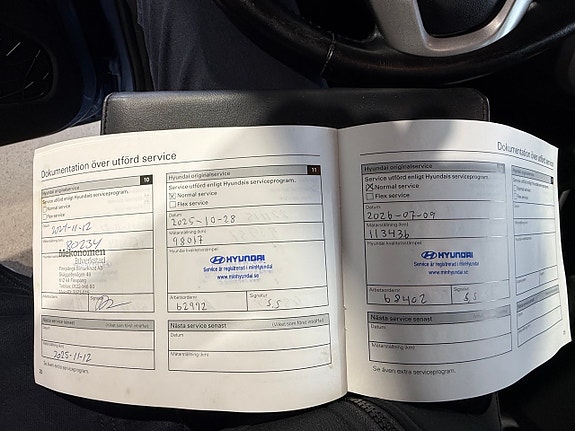 Dokumentation över utförd service
Hyundai originalservice 10
Service utförd enligt Hyundais serviceprogram.
Normal service
Flex service
Datum
Mätarställning (km)
80234
Mekonomen
Bilverkstad
Arbetsordernr.
Signatur
Nästa service senast (Vilket som först inträffar)
Datum
Mätarställning (km)
2025-11-12
Se även extra serviceprogram.
Hyundai originalservice 11
Service utförd enligt Hyundais serviceprogram.
Normal service
Flex service
Datum
2025-10-28
Mätarställning (km)
98017
Hyundai kvalitetsstämpel
HYUNDAI
Service är registrerad i minHyundai
www.minhyundai.se
Arbetsordernr.
62972
Signatur
S.S
Nästa service senast (Vilket som först inträffar)
Datum
Mätarställning (km)
Dokumentation över utförd service
Hyundai originalservice
Service utförd enligt Hyundais serviceprogram.
Normal service
Flex service
Datum
2026-07-09
Mätarställning (km)
113436
Hyundai kvalitetsstämpel
HYUNDAI
Service är registrerad i minHyundai
www.minhyundai.se
Arbetsordernr.
68402
Signatur
S.S
Nästa service senast (Vilket som först inträffar)
Datum
Mätarställning (km)
Se även extra serviceprogram.